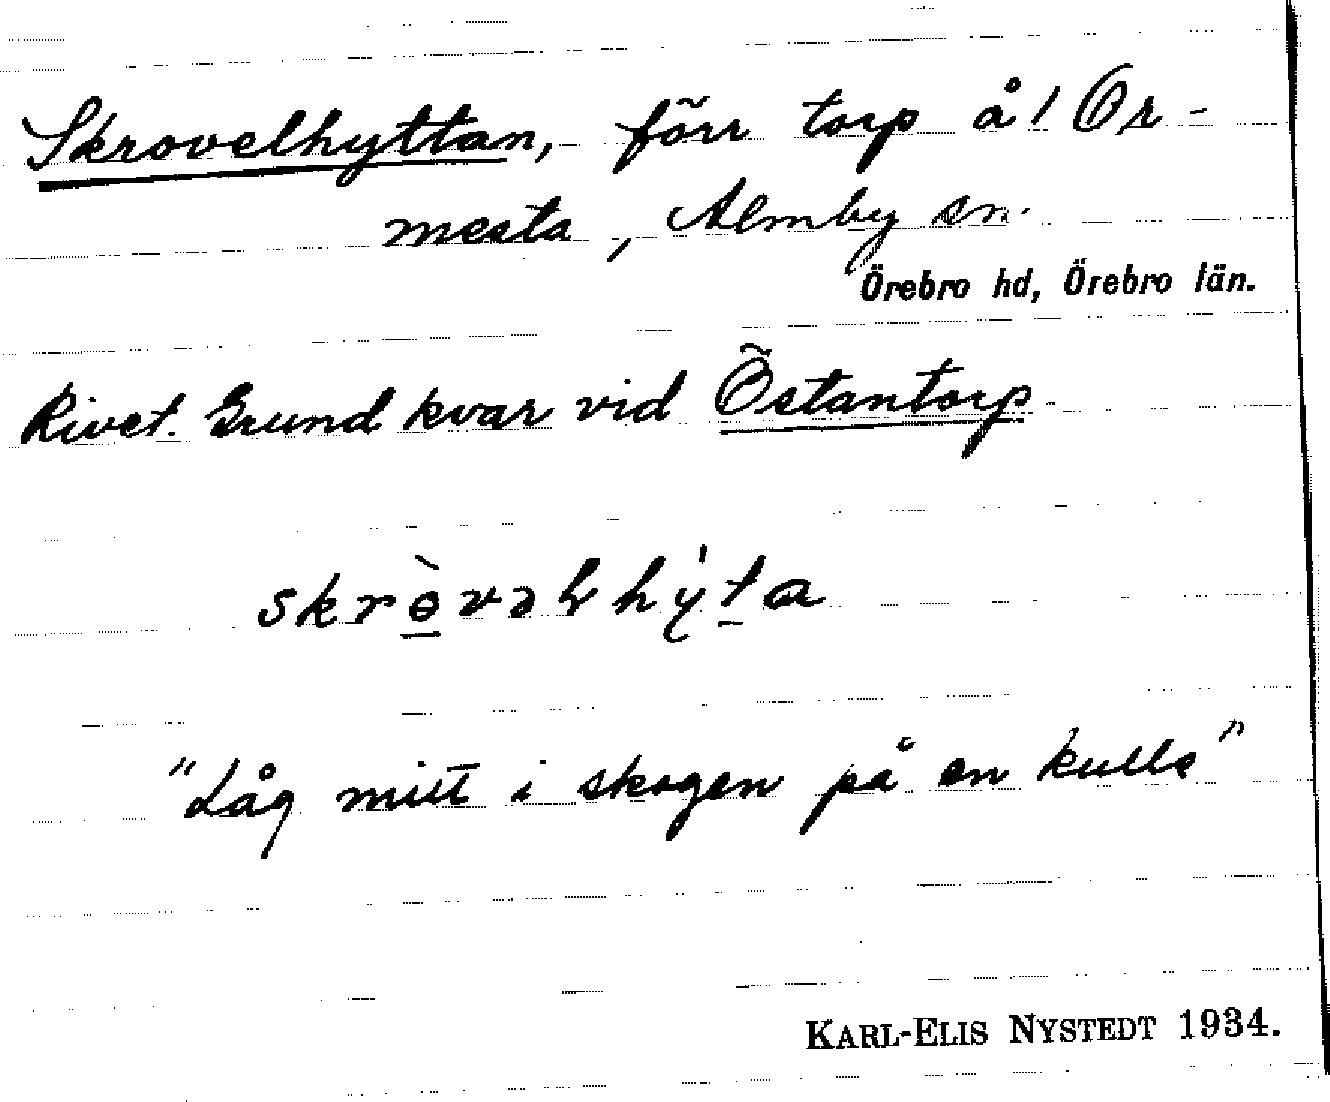 Skrovelhyttan, förr torp å/ Or-
mesta, Almby sn.
Örebro hd, Örebro län.
Rivet. Grund kvar vid Östantorp
skròvəlhy̍ta
"Låg mitt i skogen på en kulle"
KARL-ELIS NYSTEDT 1934.